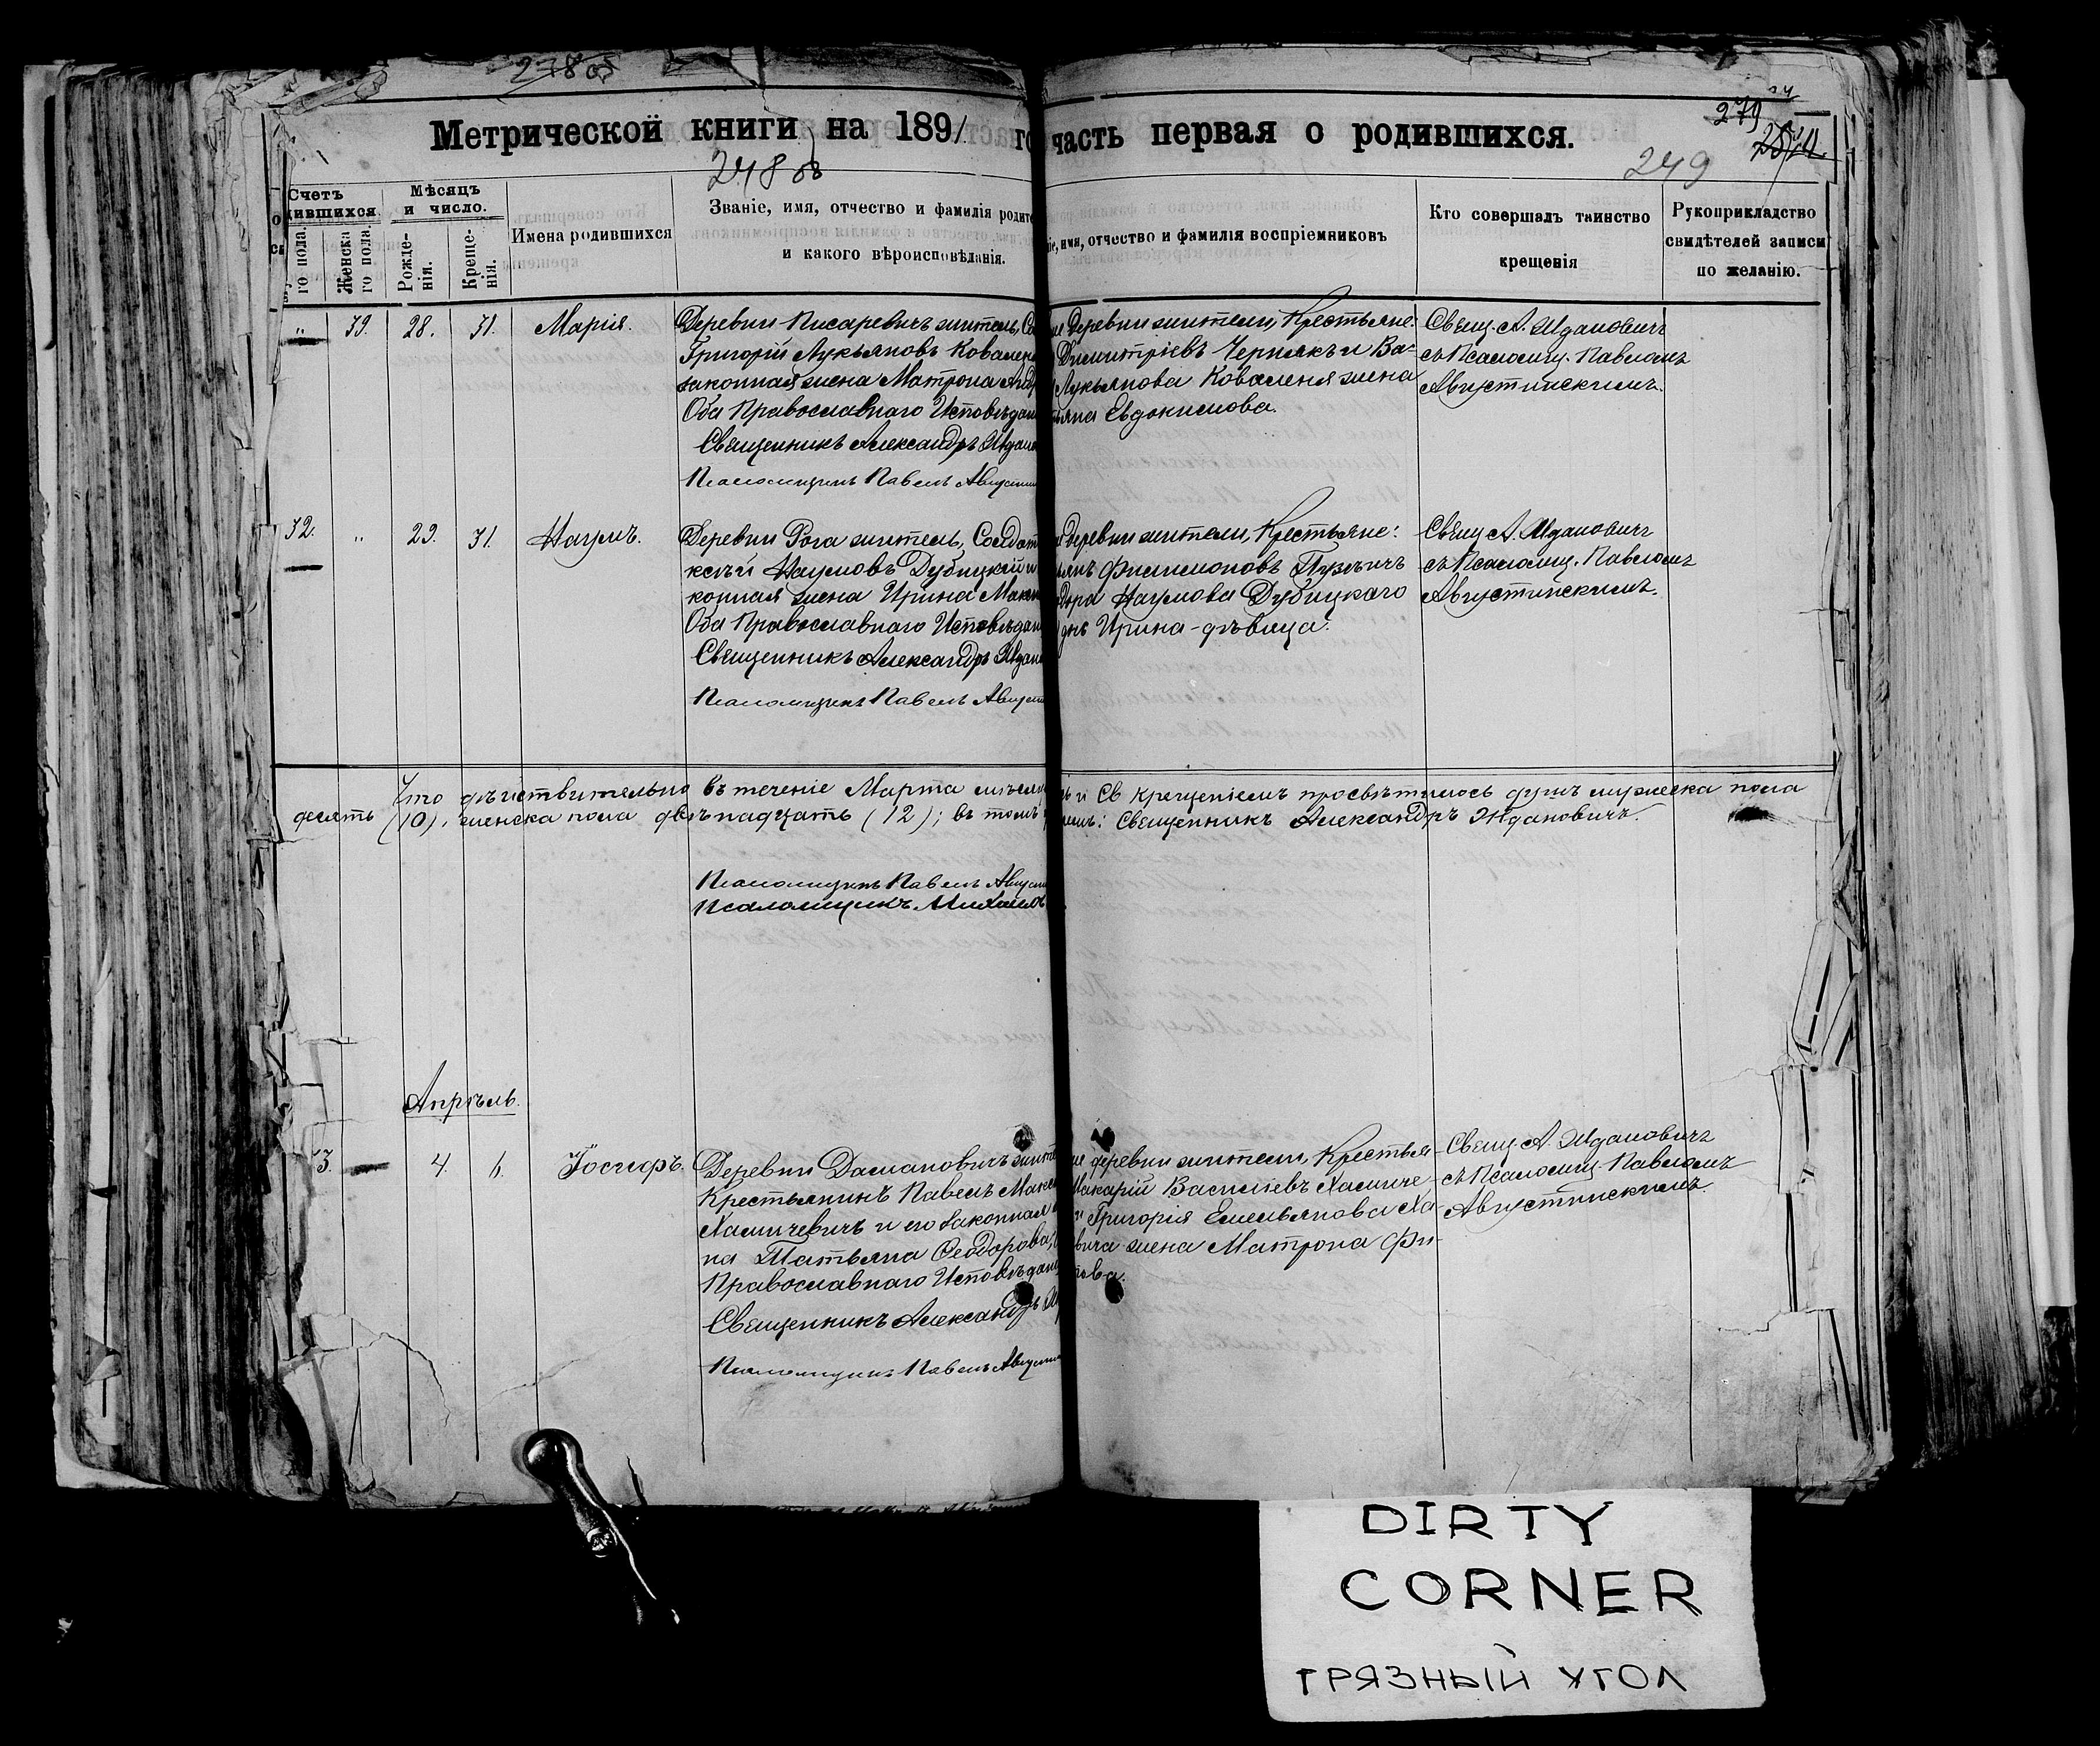 278 об
Метрической книги на 1891 го часть первая о родившихся.
279
248 об
249
Счетъ
дившихся.
Мѣсяцъ
и число.
го пола.
Женска
го пола.
Рожде-
нія.
Креще-
нія.
Имена родившихся
Званіе, имя, отчество и фамилія родите
и какого вѣроисповѣданія.
іе, имя, отчество и фамилія воспріемниковъ
Кто совершалъ таинство
крещенія
Рукоприкладство
свидѣтелей записи
по желанію.
„ 39. 28. 31. Марія.
Деревни Писаревичъ житель, Со
Григорій Лукьяновъ Ковален
законная жена Матрона Анд
Оба Православнаго Исповѣдан
Священникъ Александръ Ждано
Псаломщикъ Павелъ Августин
же деревни жители, Крестьяне:
Димитріевъ Чернякъ и Ва-
Лукьянова Коваленя жена
ьяна Евдокимова.
Свящ. А. Жданович
съ Псаломщ. Павломъ
Августинскимъ.
32. „ 29. 31. Наумъ.
Деревни Рога житель, Солдат
ксѣй Наумовъ Дубицкій и
конная жена Ирина Макс
Оба Православнаго Исповѣдан
Священникъ Александръ Ждан
Псаломщикъ Павелъ Августи
же деревни жители, Крестьяне:
ьянъ Филимоновъ Пузѣичъ
дора Наумова Дубицкаго
дчь Ирина-дѣвица.
Свящ. А. Жданович
съ Псаломщ. Павломъ
Августинскимъ.
Что дѣйствительно въ теченіе Марта мѣсяц ъ и Св Крещеніемъ просвѣтилось душъ мужеска пола
десять (10), женска пола двѣнадцать (12); въ томъ Священникъ Александръ Ждановичъ.
Псаломщикъ Павелъ Августи
Псаломщикъ Михаилъ
Апрѣль.
3. 4. 6. Іосифъ.
Деревни Домановичъ жите
Крестьянинъ Павелъ Макси
Хамичевичъ и его законная
на Татьяна Ѳеодорова,
Православнаго Исповѣдан
Священникъ Александръ
Псаломщикъ Павелъ Августи
же деревни жители, Крестья-
Макарій Василіевъ Хамиче-
и Григорія Емельянова Ха
вича жена Матрона Фи-
ова.
Свящ. А. Жданович
съ Псаломщ. Павломъ
Августинскимъ.
DIRTY
CORNER
ГРЯЗНЫЙ УГОЛ